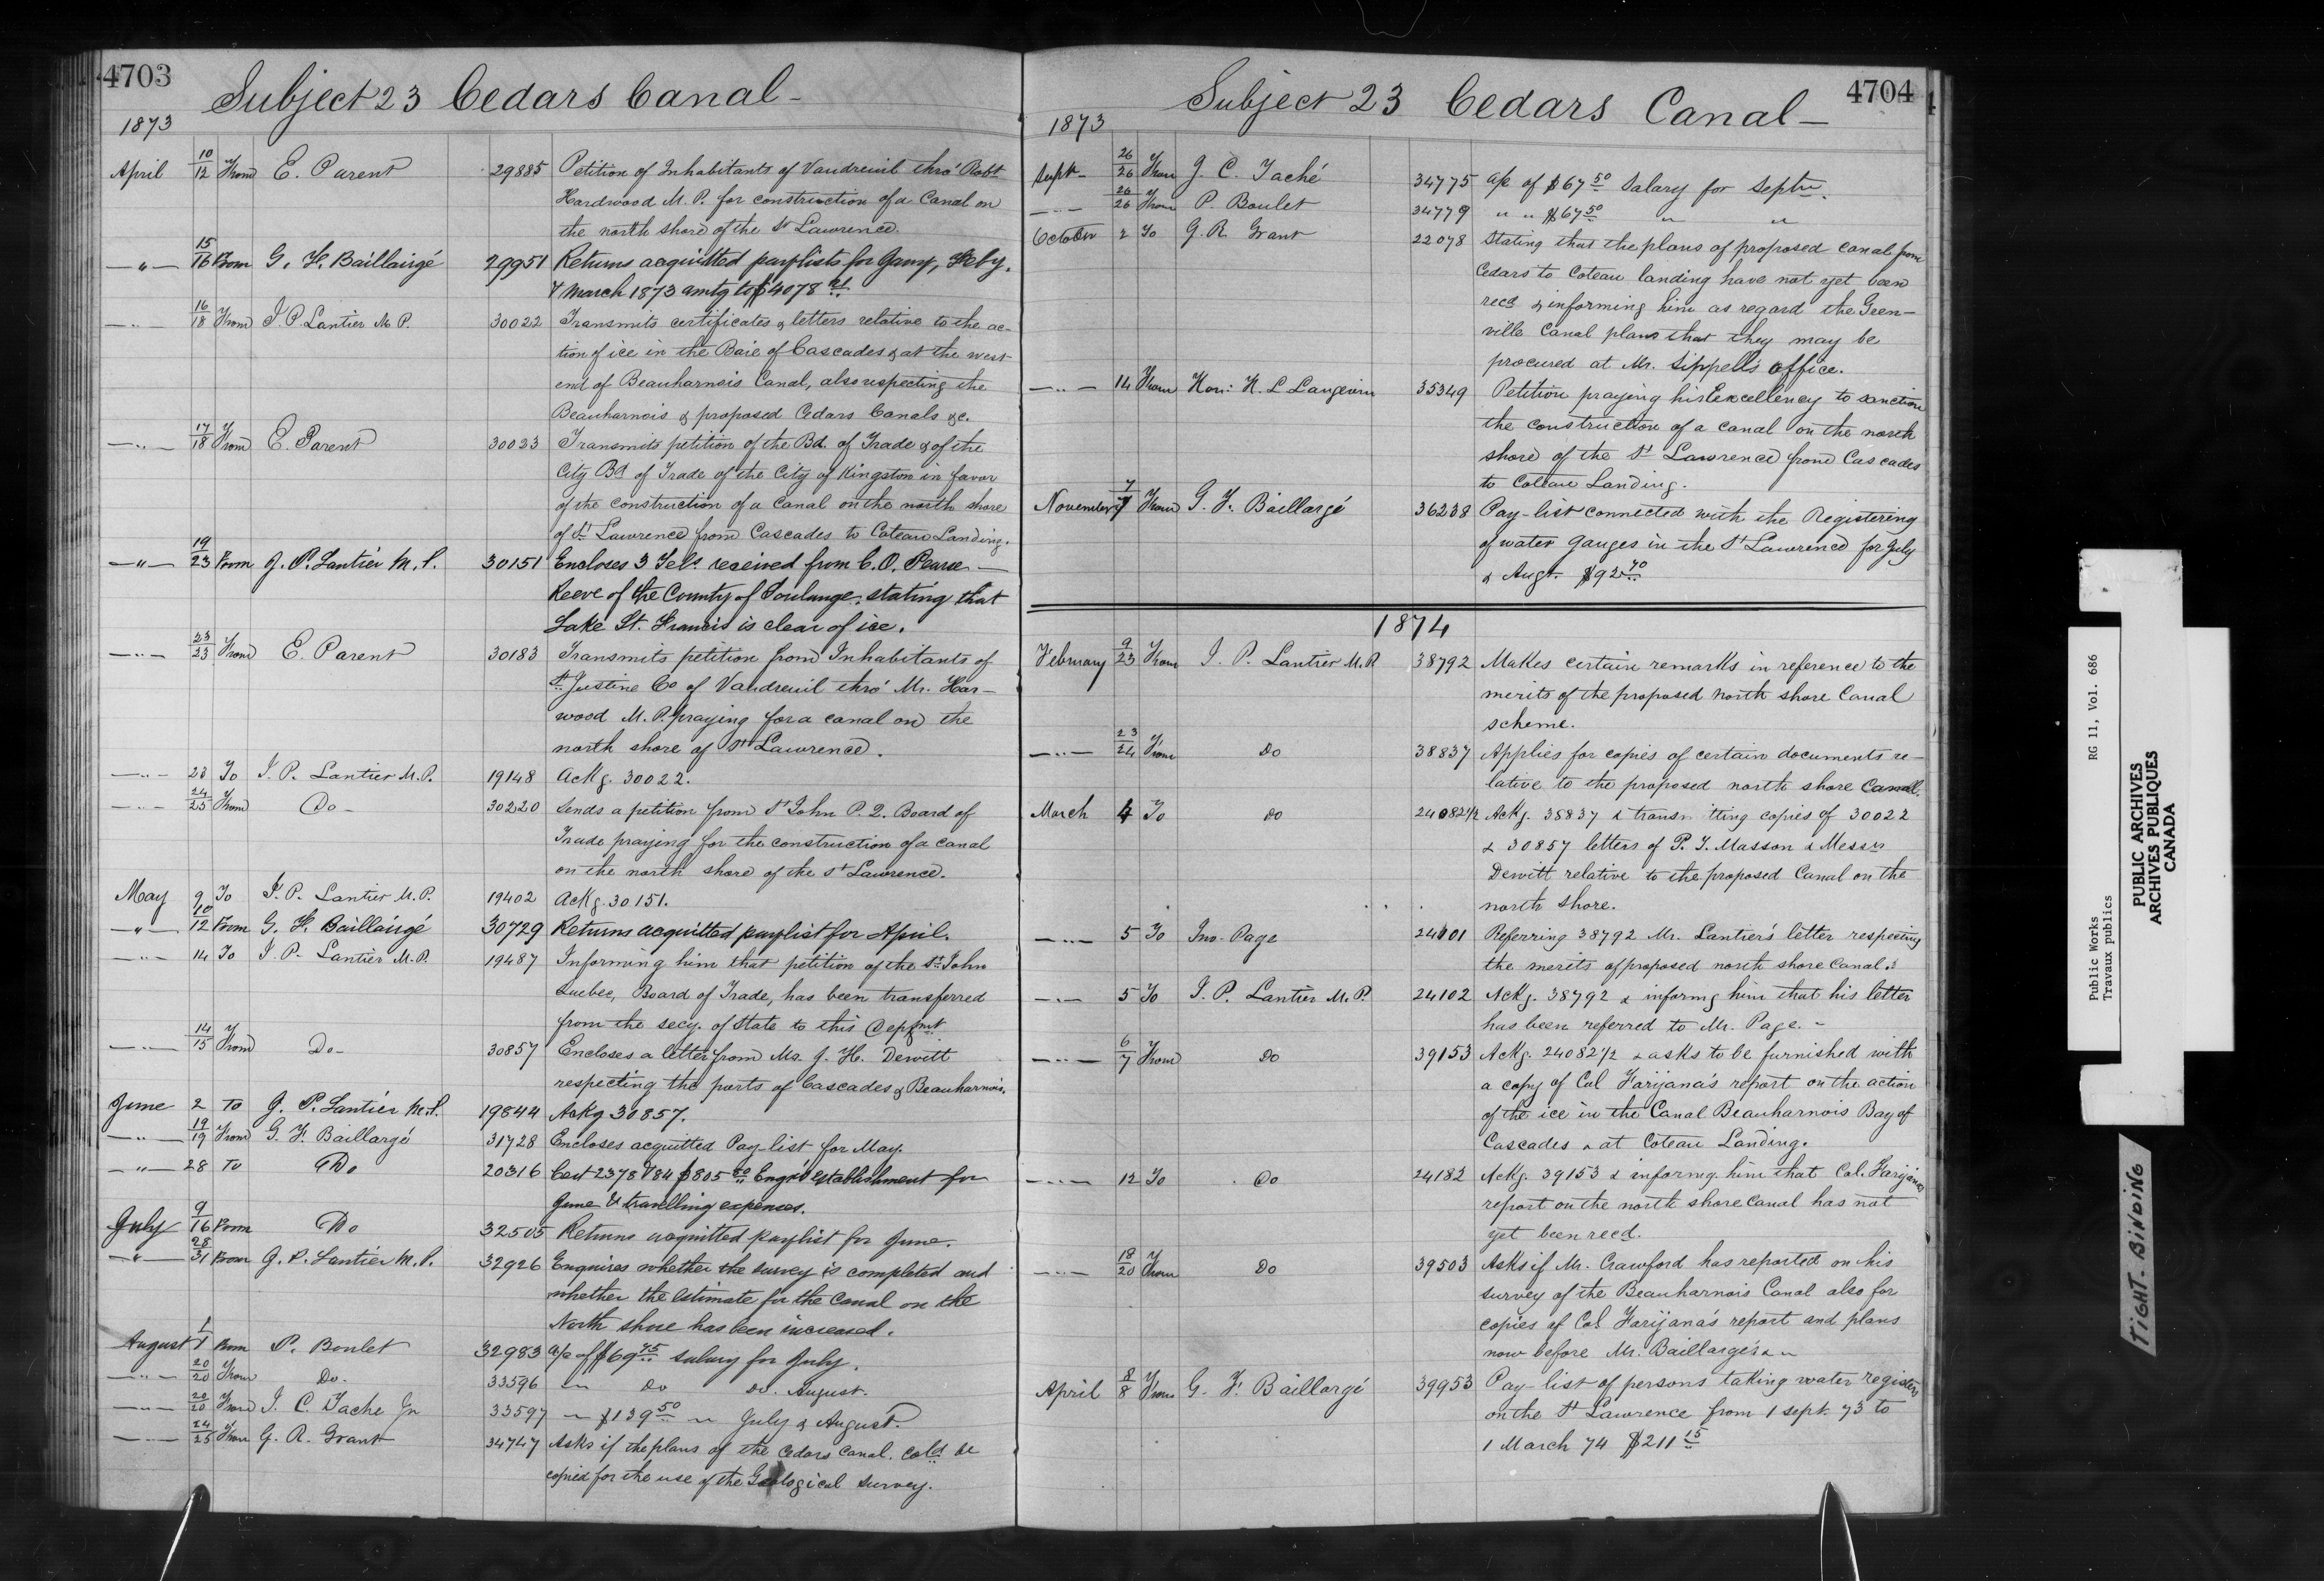 4703
Subject 23 Cedars Canal -
1873
April 10/12 From E. Parent 29885 Petition of Inhabitants of Vaudreuil thro' Robt
Hardwood M. P. for construction of a Canal on
the north shore of the St Lawrence.
-"- 15/16 From G. F. Baillairgé 29951 Returns acquitted paylists for Jany, Feby,
& March 1873 amtg to $4078
-"- 16/18 From J. P. Lantier M. P. 30022 Transmits certificates & letters relative to the ac-
tion of ice in the Baie of Cascades & at the west
end of Beauharnois Canal, also respecting the
Beauharnois & proposed Cedars Canals &c.
-"- 17/18 From E. Parent 30023 Transmits petition of the Bd. of Trade & of the
City Bd of Trade of the City of Kingston in favor
of the construction of a Canal on the north shore
of St Lawrence from Cascades to Coteau Landing.
-"- 19/23 From J. P. Lantier M. P. 30151 Encloses 3 Tels. received from C. O. Pearse -
Reeve of the County of Soulange, stating that
Lake St. Francis is clear of ice.
-"- 23/23 From E. Parent 30183 Transmits petition from Inhabitants of
St. Justine Co of Vaudreuil thro' Mr. Har-
wood M. P. praying for a canal on the
north shore of St Lawrence.
-"- 23 To J. P. Lantier M. P. 19148 Ackg. 30022.
-"- 24/25 From Do - 30220 Sends a petition from St John P. Q. Board of
Trade praying for the construction of a canal
on the north shore of the St Lawrence.
May 9 To J. P. Lantier M. P. 19402 Ackg. 30151.
-"- 10/12 From G. F. Baillairgé 30729 Returns acquitted paylist for April.
-"- 14 To J. P. Lantier M. P. 19487 Informing him that petition of the St. John
Quebec, Board of Trade, has been transferred
from the secy. of State to this Depmt
-"- 14/15 From Do - 30857 Encloses a letter from Mr. J. H. Dewitt
respecting the ports of Cascades & Beauharnois.
June 2 To J. P. Lantier M. P. 19844 Ackg 30857.
-"- 19/19 From G. F. Baillargé 31728 Encloses acquitted Pay-list for May.
-"- 28 To Do 20316 Cert 2378 & 84 $805 Engrs establishment for
June & travelling expenses.
July 9/16 From Do 32505 Returns acquitted paylist for June.
-"- 28/31 From J. P. Lantier M. P. 32926 Enquires whether the survey is completed and
whether the estimate for the Canal on the
North shore has been increased.
August 1/1 From P. Boulet 32983 a/c of $69 75 salary for July.
-"- 20/20 From Do. 33596 " Do Do. August.
-"- 20/20 From J. C. Tache Jr 33597 " $139 50 " July & August.
-"- 24/25 From G. R. Grant 34747 Asks if the plans of the Cedars Canal. cold be
copied for the use of the Geological survey.
4704
Subject 23 Cedars Canal -
1873
Sept - 26/26 From J. C. Taché 34775 a/c of $67 50 Salary for Septr.
-"- 26/26 From P. Boulet 34779 " " $67 50 " "
October 2 To G. R. Grant 22078 Stating that the plans of proposed canal from
Cedars to Coteau landing have not yet been
recd & informing him as regard the Geen-
ville Canal plans that they may be
procured at Mr. Sippell's office.
-"- 14 From Hon: H. L Langevin 35349 Petition praying his Excellency to sanction
the construction of a canal on the north
shore of the St Lawrence from Cascades
to Coteau Landing.
November 7/7 From G. F. Baillargé 36238 Pay-list connected with the Registering
of water gauges in the St Lawrence for July
& Augt. $92 70
1874
February 9/23 From J. P. Lantier M. P. 38792 Makes certain remarks in reference to the
merits of the proposed north shore Canal
scheme.
-"- 23/24 From Do 38837 Applies for copies of certain documents re-
lative to the proposed north shore Canal.
March 4 To Do 24082½ Ackg. 38837 & transmitting copies of 30022
& 30857 letters of P. T. Masson & Messrs
Dewitt relative to the proposed Canal on the
north shore.
-"- 5 To Jno. Page 24101 Referring 38792 Mr. Lantier's letter respecting
the merits of proposed north shore Canal.
-"- 5 To J. P. Lantier M. P. 24102 Ackg. 38792 & informg him that his letter
has been referred to Mr. Page. -
-"- 6/7 From Do 39153 Ackg. 24082½ & asks to be furnished with
a copy of Col Farijana's report on the action
of the ice in the Canal Beauharnois Bay of
Cascades & at Coteau Landing.
-"- 12 To Do 24182 Ackg. 39153 & informg. him that Col. Farijana's
report on the north shore Canal has not
yet been recd.
-"- 18/20 From Do 39503 Asks if Mr. Crawford has reported on his
survey of the Beauharnois Canal also for
copies of Col Farijana's report and plans
now before Mr. Baillargé
April 8/8 From G. F. Baillargé 39953 Pay-list of persons taking water registers
on the St Lawrence from 1 Sept. 73 to
1 March 74 $211 15
Public Works RG 11, Vol. 686
Travaux publics
PUBLIC ARCHIVES
ARCHIVES PUBLIQUES
CANADA
TIGHT-BINDING